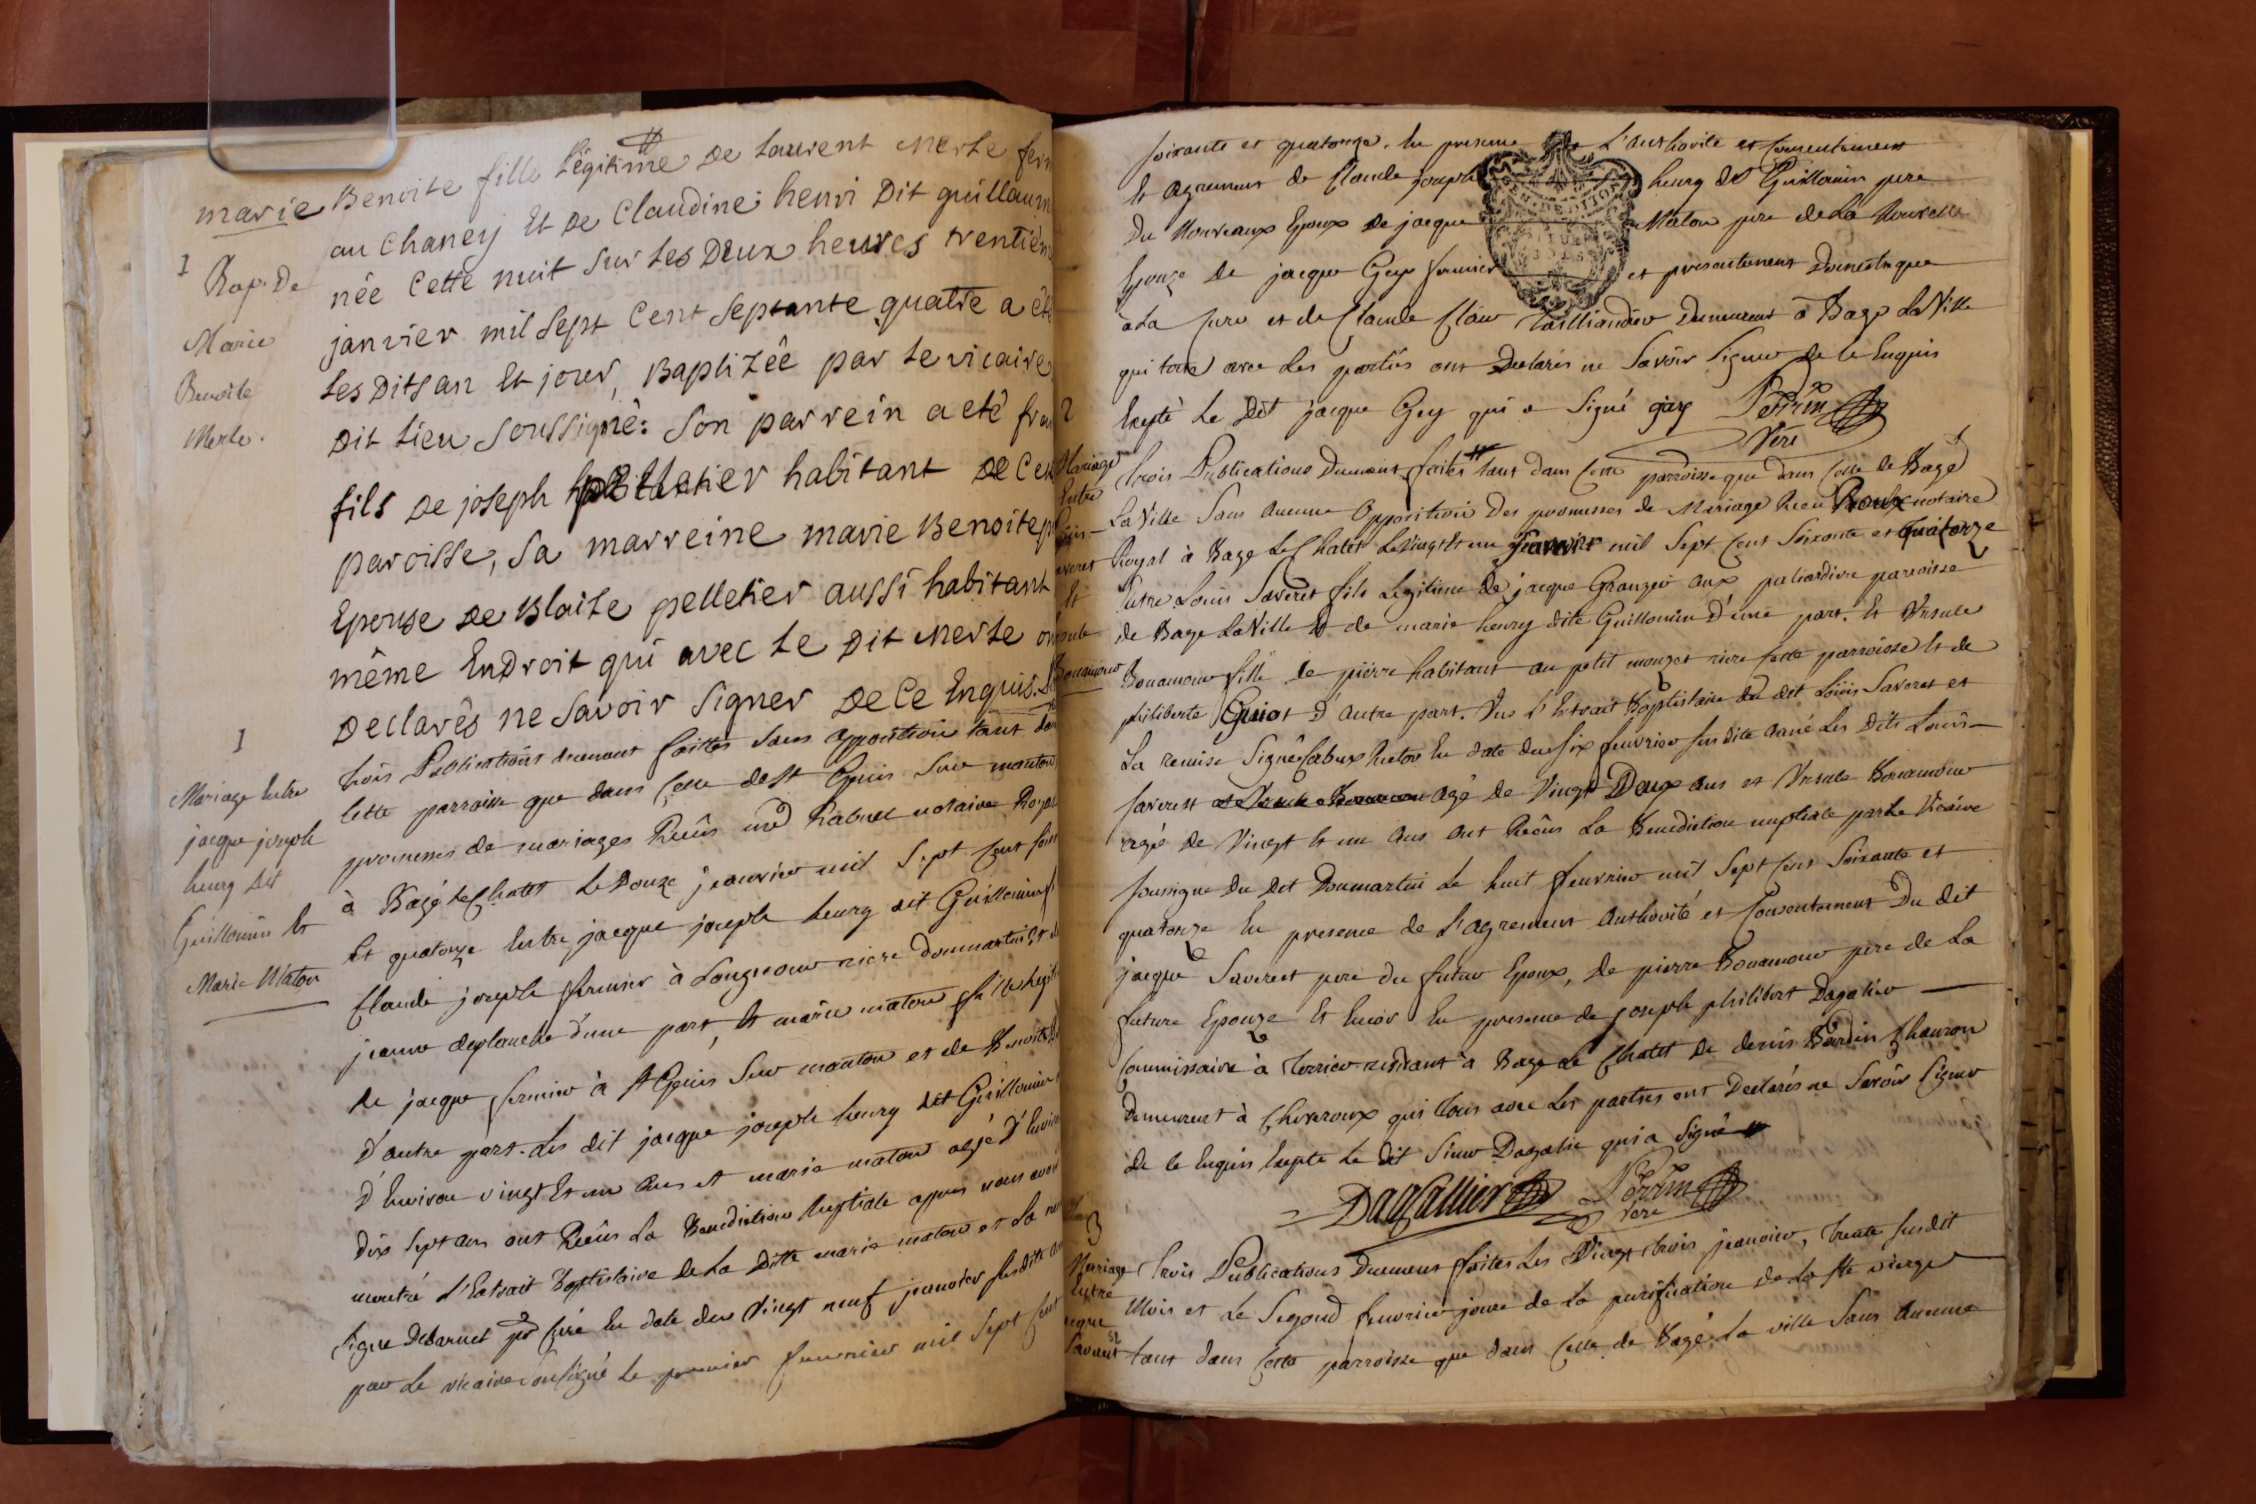 marie Benoite fille Légitime De Laurent Merle
au Chaney Et De Claudine henri Dit guillaum
née Cette nuit Sur Les Deux heures trentiém
janvier mil Sept Cent Septante quatre a été
Les Dits an Et jour, Baptizée par Le vicaire
Dit Lieu Soussigné: Son parrein a eté fran
fils De joseph habitant De Ce
paroisse, Sa marreine marie Benoite
Epouse De Blaise pelletier aussi habitant
même Endroit qui avec Le Dit Merle on
Declarés ne Savoir Signer De Ce Enquis.
1
Bap. De
Marie
Benoite
Merle.
1
Mariage Entre
jacque joseph
henry Dit
Guillomin Et
Marie Maton
trois Publications dument faittes Sans opposition tant dan
Cette parroisse que dans Celle de St Genis Sur manton
promesses de mariages Recûs notaire Royal
à Bagé Le Chatel Le Douze jeanvier mil Sept Cent Soix
Et quatorze Entre jacque joseph henry dit Guillomin f
Claude joseph fermier à riere dommartin et d
jeanne deplanche d'une part, Et marie maton fille Legit
de jacque fermier à St Genis Sur manton et de Benoite
D'autre part. Les dit jacque joseph henry dit Guillomin
D'Environ vingt Et un Ans et marie maton agé D'Envir
dix Sept ans ont Recûs La Benediction Nuptiale appres nous avoir
montré L'Extrait Baptistaire de La Ditte marie maton et La
Signé Debarnet Curé En date du vingt neuf janvier Susdite
par Le vicaire Soussigné Le premier feuvrier mil Sept Cent
Soixante et quatorze. En presence L'Authorite et Consentiment
Et agrement de Claude joseph henry dit Guillomin pere
Du Nouveaux Epoux De jacque Maton pere de La Nouvelle
Epouze De jacque Gey fermier et presentement Domestique
à La Cure et de Claude Clair Tailliandier Demeurant à Bagé La Ville
qui tous avec Les parties ont Declarés ne Savoir Signer de Ce Enquis
Excepté Le Dit jacque Gey qui a Signé gay Perrin
Vere
2
Mariage
Entre
Loüis
averet
Et
sule
Bonamour
Trois Publications Dument faites tant dans Cette parroisse que dans Celle de Bagé
La Ville Sans Aucune Opposition Des promesses de Mariage Recu Roux notaire
Royal à Bage Le Chatel Le Vingt Et un Janvier mil Sept Cent Soixante et Quatorze
Entre Loüis Saveret fils Legitime de jacque Granger aux parroisse
de Bage La Ville Et de marie henry dite Guillomin D'une part. Et Ursule
Bonamour fille de pierre habitant au petit mouget riere Cette parroisse Et de
philiberte Guiot D'autre part. Vus L'Extrait Baptistaire du dit Loüis Saveret et
La remise Signé En date du Six feuvrier Susdite Année Les Dits Loüis
Saverest agé de Vingt Deux Ans et Ursule Bonamour
agé de Vingt Et un Ans Ont Recûs La Benediction nuptiale par Le Vicaire
Soussigne Du Dit Dommartin Le huit feuvrier mil Sept Cent Soixante et
quatorze En presence de L'agrement Authorité et Consentement Du dit
jacque Saverest pere du futur Epoux, De pierre Bonamour pere de La
future Epouze Et Encor En presence de joseph philibert Dagalier
Commissaire à Terrier residant à Bage Le Chatel De denis Bardin Charron
Demeurent à Cheveroux qui Tous avec Les parties ont Declarés ne Savoir Signer
de Ce Enquis Excepte Le dit Sieur Dagalie qui a Signé
Dagallier Perrin
Vere
3
Mariage
Entre
cque
Saveret
Trois Publications Dument faites Les Vingt Trois jeanvier, Trente Susdit
Mois et Le Segond feuvrier jour de La purification de La Ste vierge
tant dans Cette parroisse que dans Celle de Bagé La ville Sans Aucune